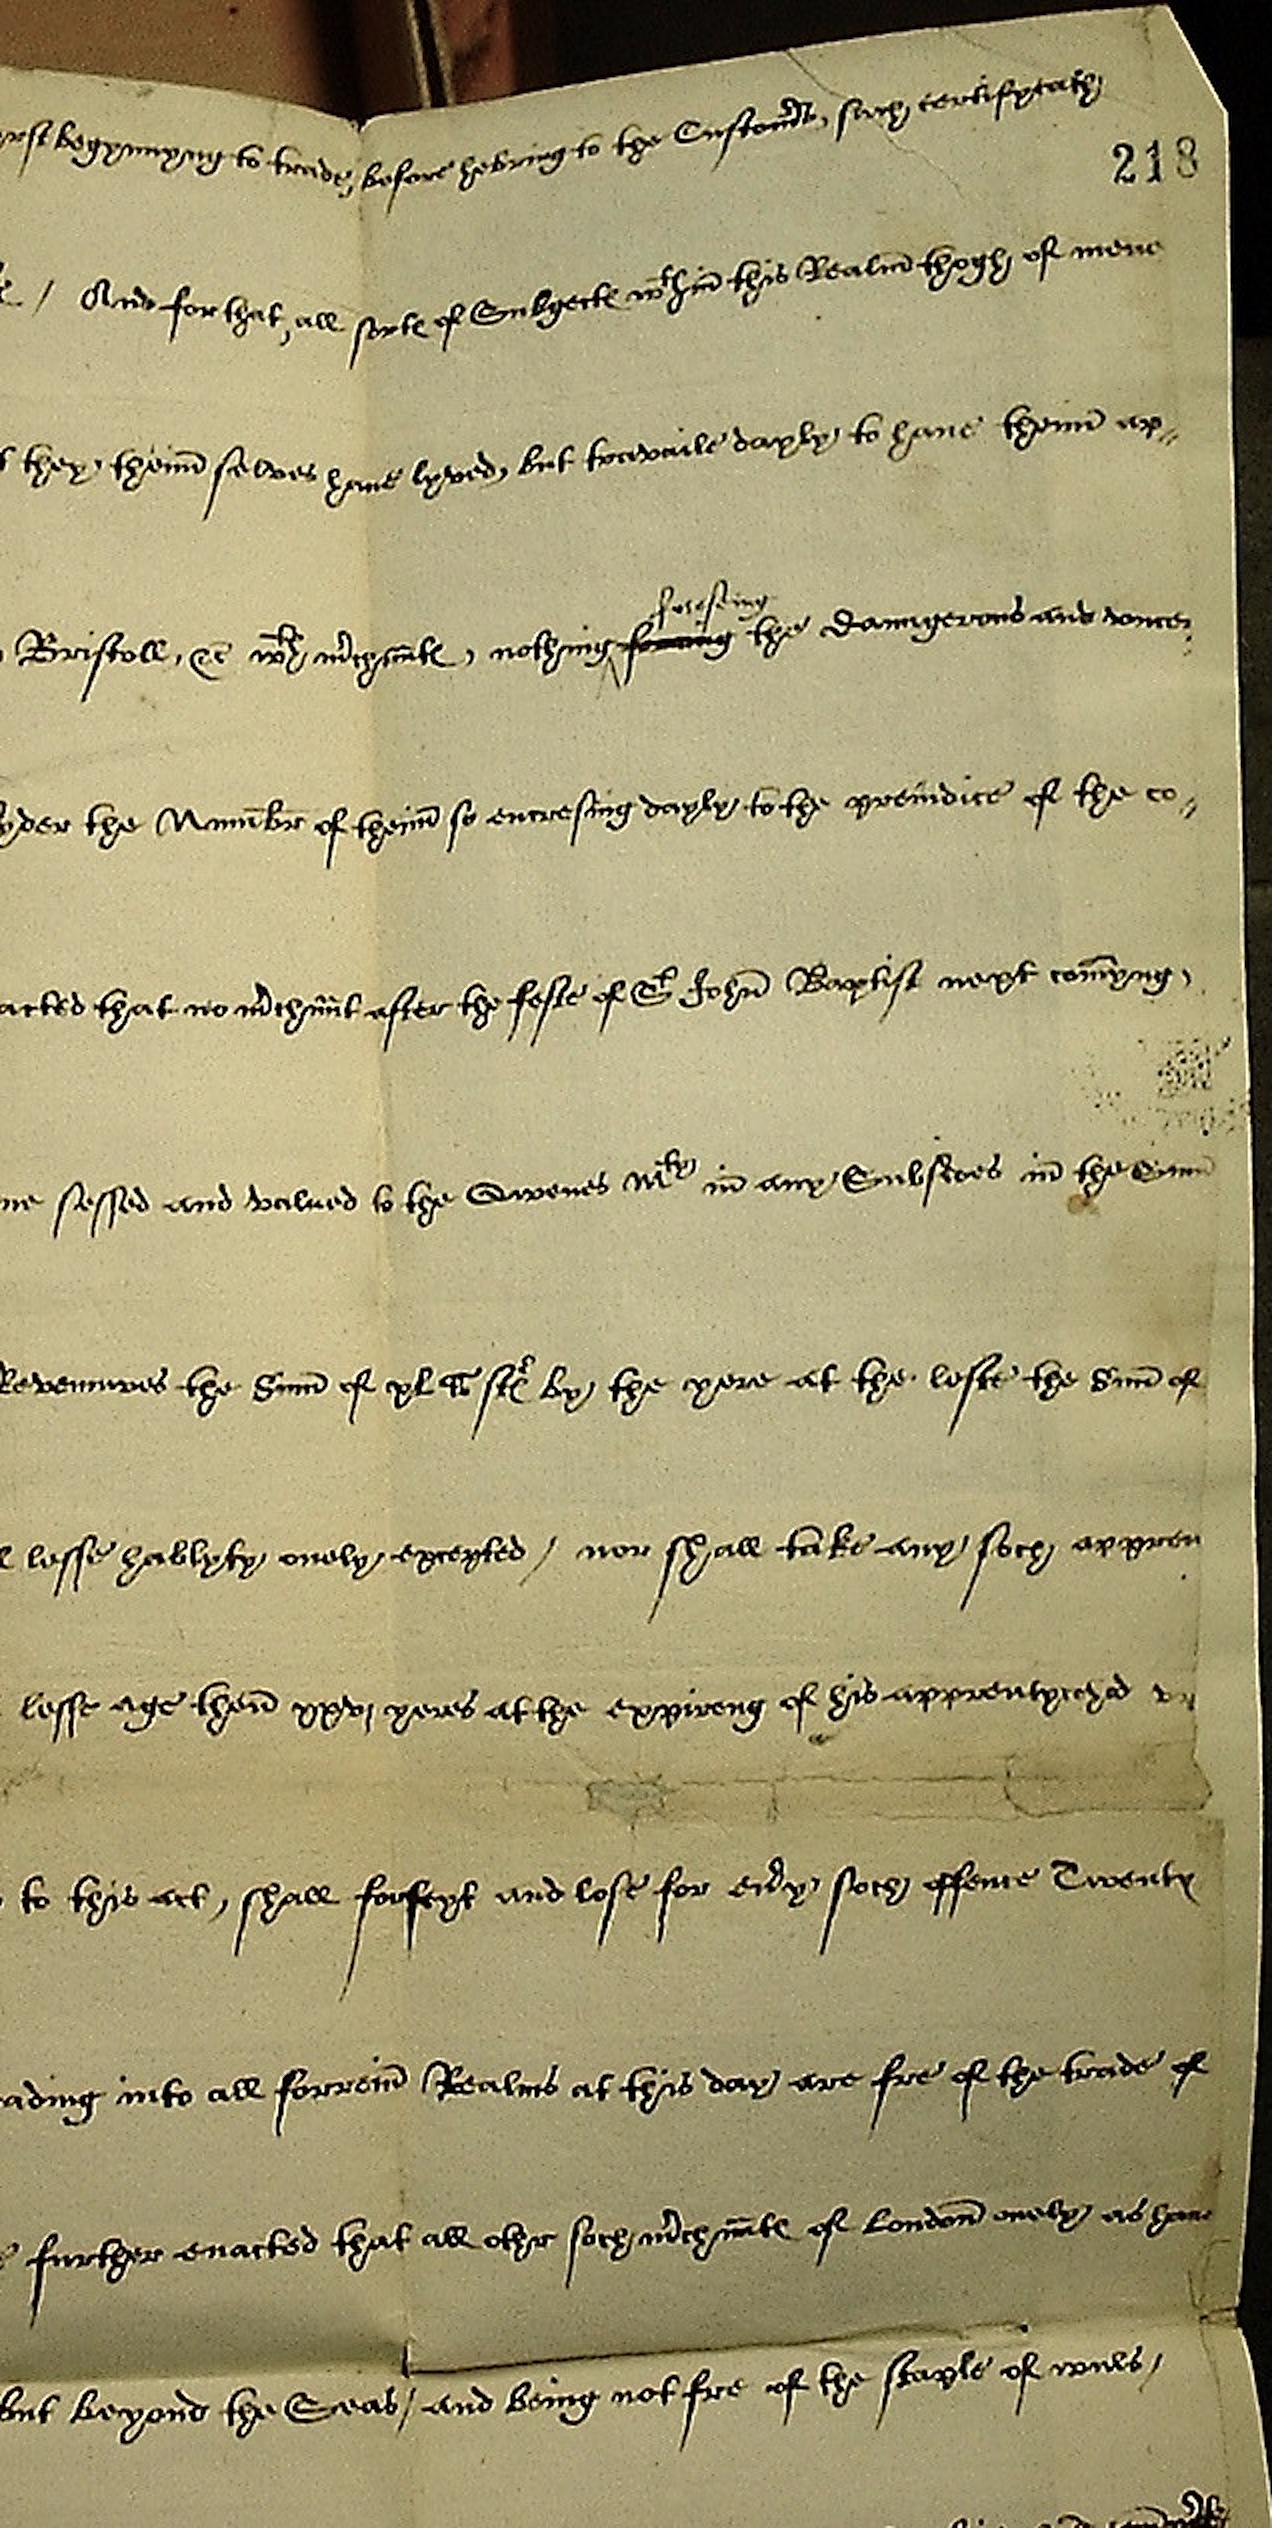 begynnyng to trade, before he bring to the Customrs, such certifycath
218
/ And for that, all sorts of Subgects wthin this Realm thogh of mene
they theim selves have lyved, but travaile dayly to have theim ap-
foreseing
Bristoll, &c wth mrchants, nothing the Daungerous and
the Numbr of theim so encresing dayly to the preiudice of the co-
acted that no mrchant after the feste of St John Baptist next comyng,
sessed and valued to the Qwenes Maty in any Subsedes in the Sum
Revennues the Sum of xl li str by the yere at the leste the Sum of
lesse hablyty onely excepted / nor shall take any soch appren
lesse age then xxvj yeres at the expireng of his apprentycehod
to this act, shall forfeyt and lose for evry soch offence Twenty
ading into all forrein Realms at this day are fre of the trade of
further enacted that all othr soch mrchants of London onely as have
but beyond the Seas / and being not fre of the staple of wuls /